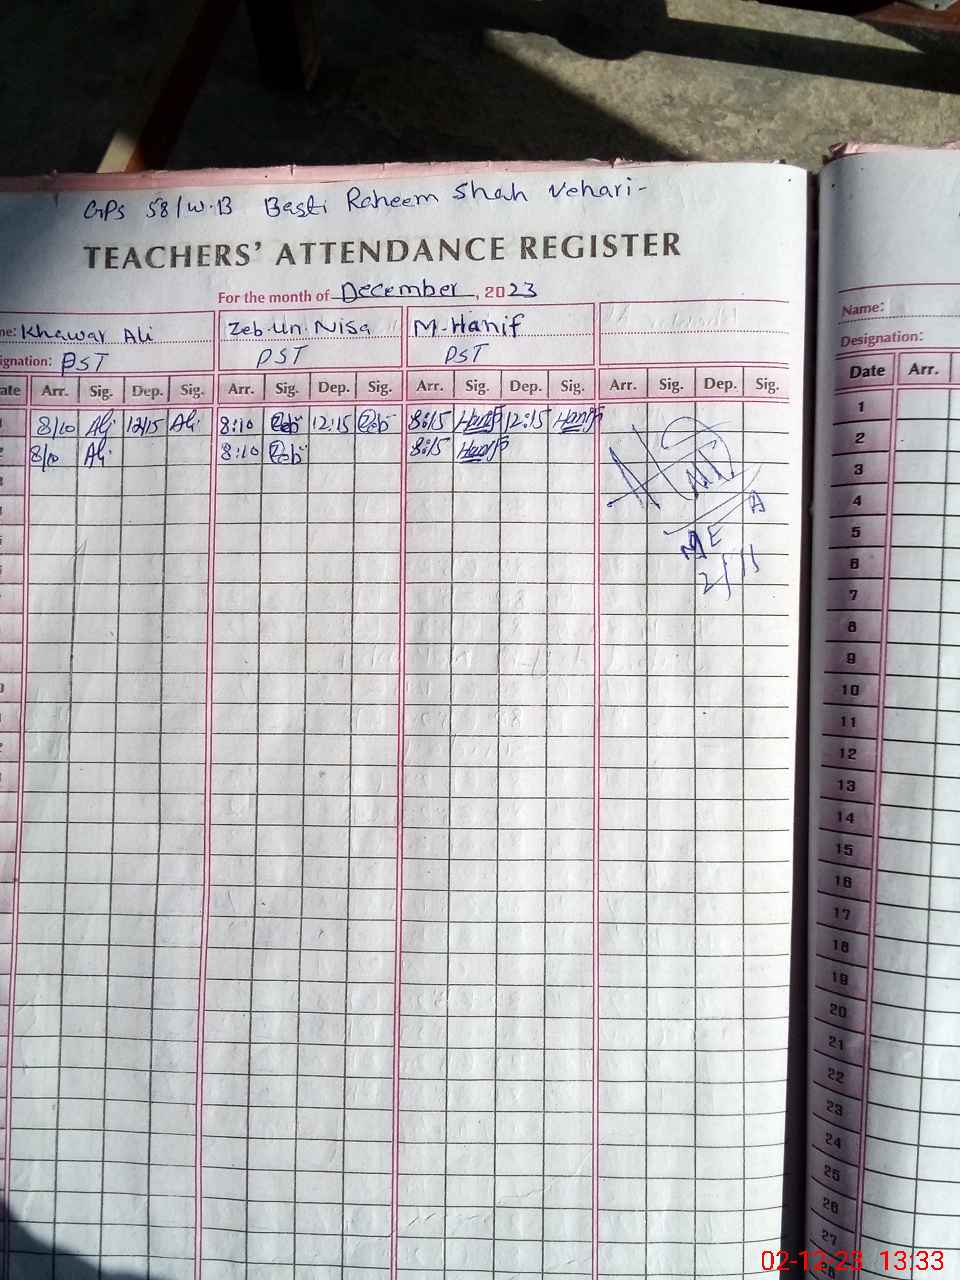 GPS 58/W.B Basti Raheem Shah Vehari-
TEACHERS' ATTENDANCE REGISTER
For the month of December, 2023
me: Khawar Ali Zeb-Un-Nisa M-Hanif
ignation: PST PST PST
ate Arr. Sig. Dep. Sig. Arr. Sig. Dep. Sig. Arr. Sig. Dep. Sig. Arr. Sig. Dep. Sig.
8/10 Ali 12/15 Ali 8:10 Zeb 12:15 Zeb 8:15 Hanif 12:15 Hanif
8/10 Ali 8:10 Zeb 8:15 Hanif
MEA
2/11
Name:
Designation:
Date Arr.
1
2
3
4
5
6
7
8
9
10
11
12
13
14
15
16
17
18
19
20
21
22
23
24
25
26
27
28
02-12-23 13:33